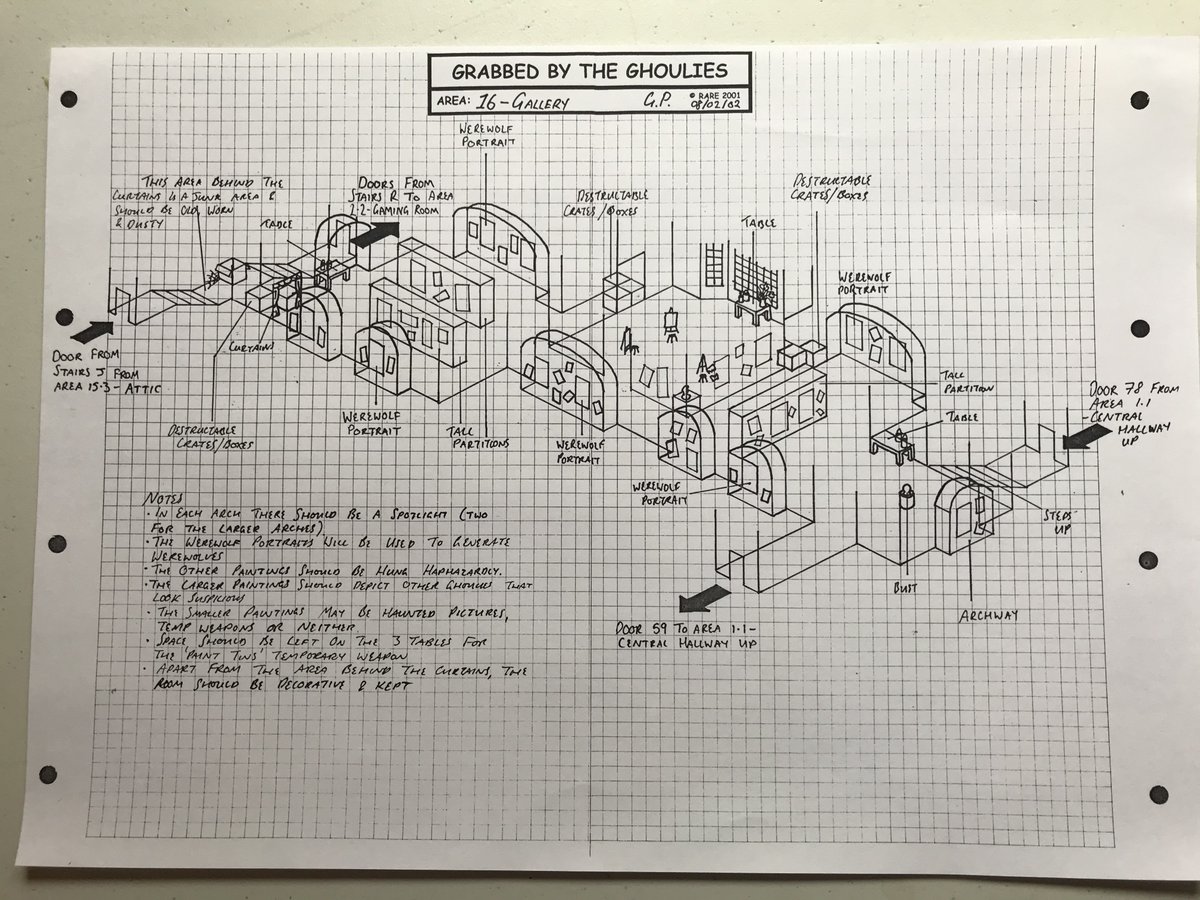 GRABBED BY THE GHOULIES
AREA: 16 - GALLERY G.P. © RARE 2001
08/02/02
WEREWOLF
PORTRAIT
THIS AREA BEHIND THE
CURTAINS IS A JUNK AREA &
SHOULD BE OLD, WORN
& DUSTY
TABLE
DOORS FROM
STAIRS R TO AREA
2.2-GAMING ROOM
DESTRUCTABLE
CRATES/BOXES
TABLE
DESTRUCTABLE
CRATES/BOXES
WEREWOLF
PORTRAIT
DOOR FROM
STAIRS J FROM
AREA 15.3 - ATTIC
CURTAINS
DESTRUCTABLE
CRATES/BOXES
WEREWOLF
PORTRAIT
TALL
PARTITIONS
WEREWOLF
PORTRAIT
WEREWOLF
PORTRAIT
TALL
PARTITION
TABLE
DOOR 78 FROM
AREA 1.1
- CENTRAL
HALLWAY
UP
STEPS
UP
BUST
ARCHWAY
DOOR 59 TO AREA 1.1 -
CENTRAL HALLWAY UP
NOTES
· IN EACH ARCH THERE SHOULD BE A SPOTLIGHT (TWO
FOR THE LARGER ARCHES).
· THE WEREWOLF PORTRAITS WILL BE USED TO GENERATE
WEREWOLVES
· THE OTHER PAINTINGS SHOULD BE HUNG HAPHAZARDLY.
· THE LARGER PAINTINGS SHOULD DEPICT OTHER GHOULIES THAT
LOOK SUSPICIOUS
· THE SMALLER PAINTINGS MAY BE HAUNTED PICTURES,
TEMP WEAPONS OR NEITHER.
· SPACE SHOULD BE LEFT ON THE 3 TABLES FOR
THE 'PAINT TINS' TEMPORARY WEAPON
· APART FROM THE AREA BEHIND THE CURTAINS, THE
ROOM SHOULD BE DECORATIVE & KEPT